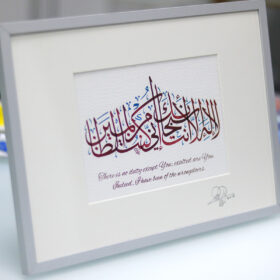 لا إله إلا أنت سبحانك إني كنت من الظالمين
There is no deity except You; exalted are You.
Indeed, I have been of the wrongdoers.